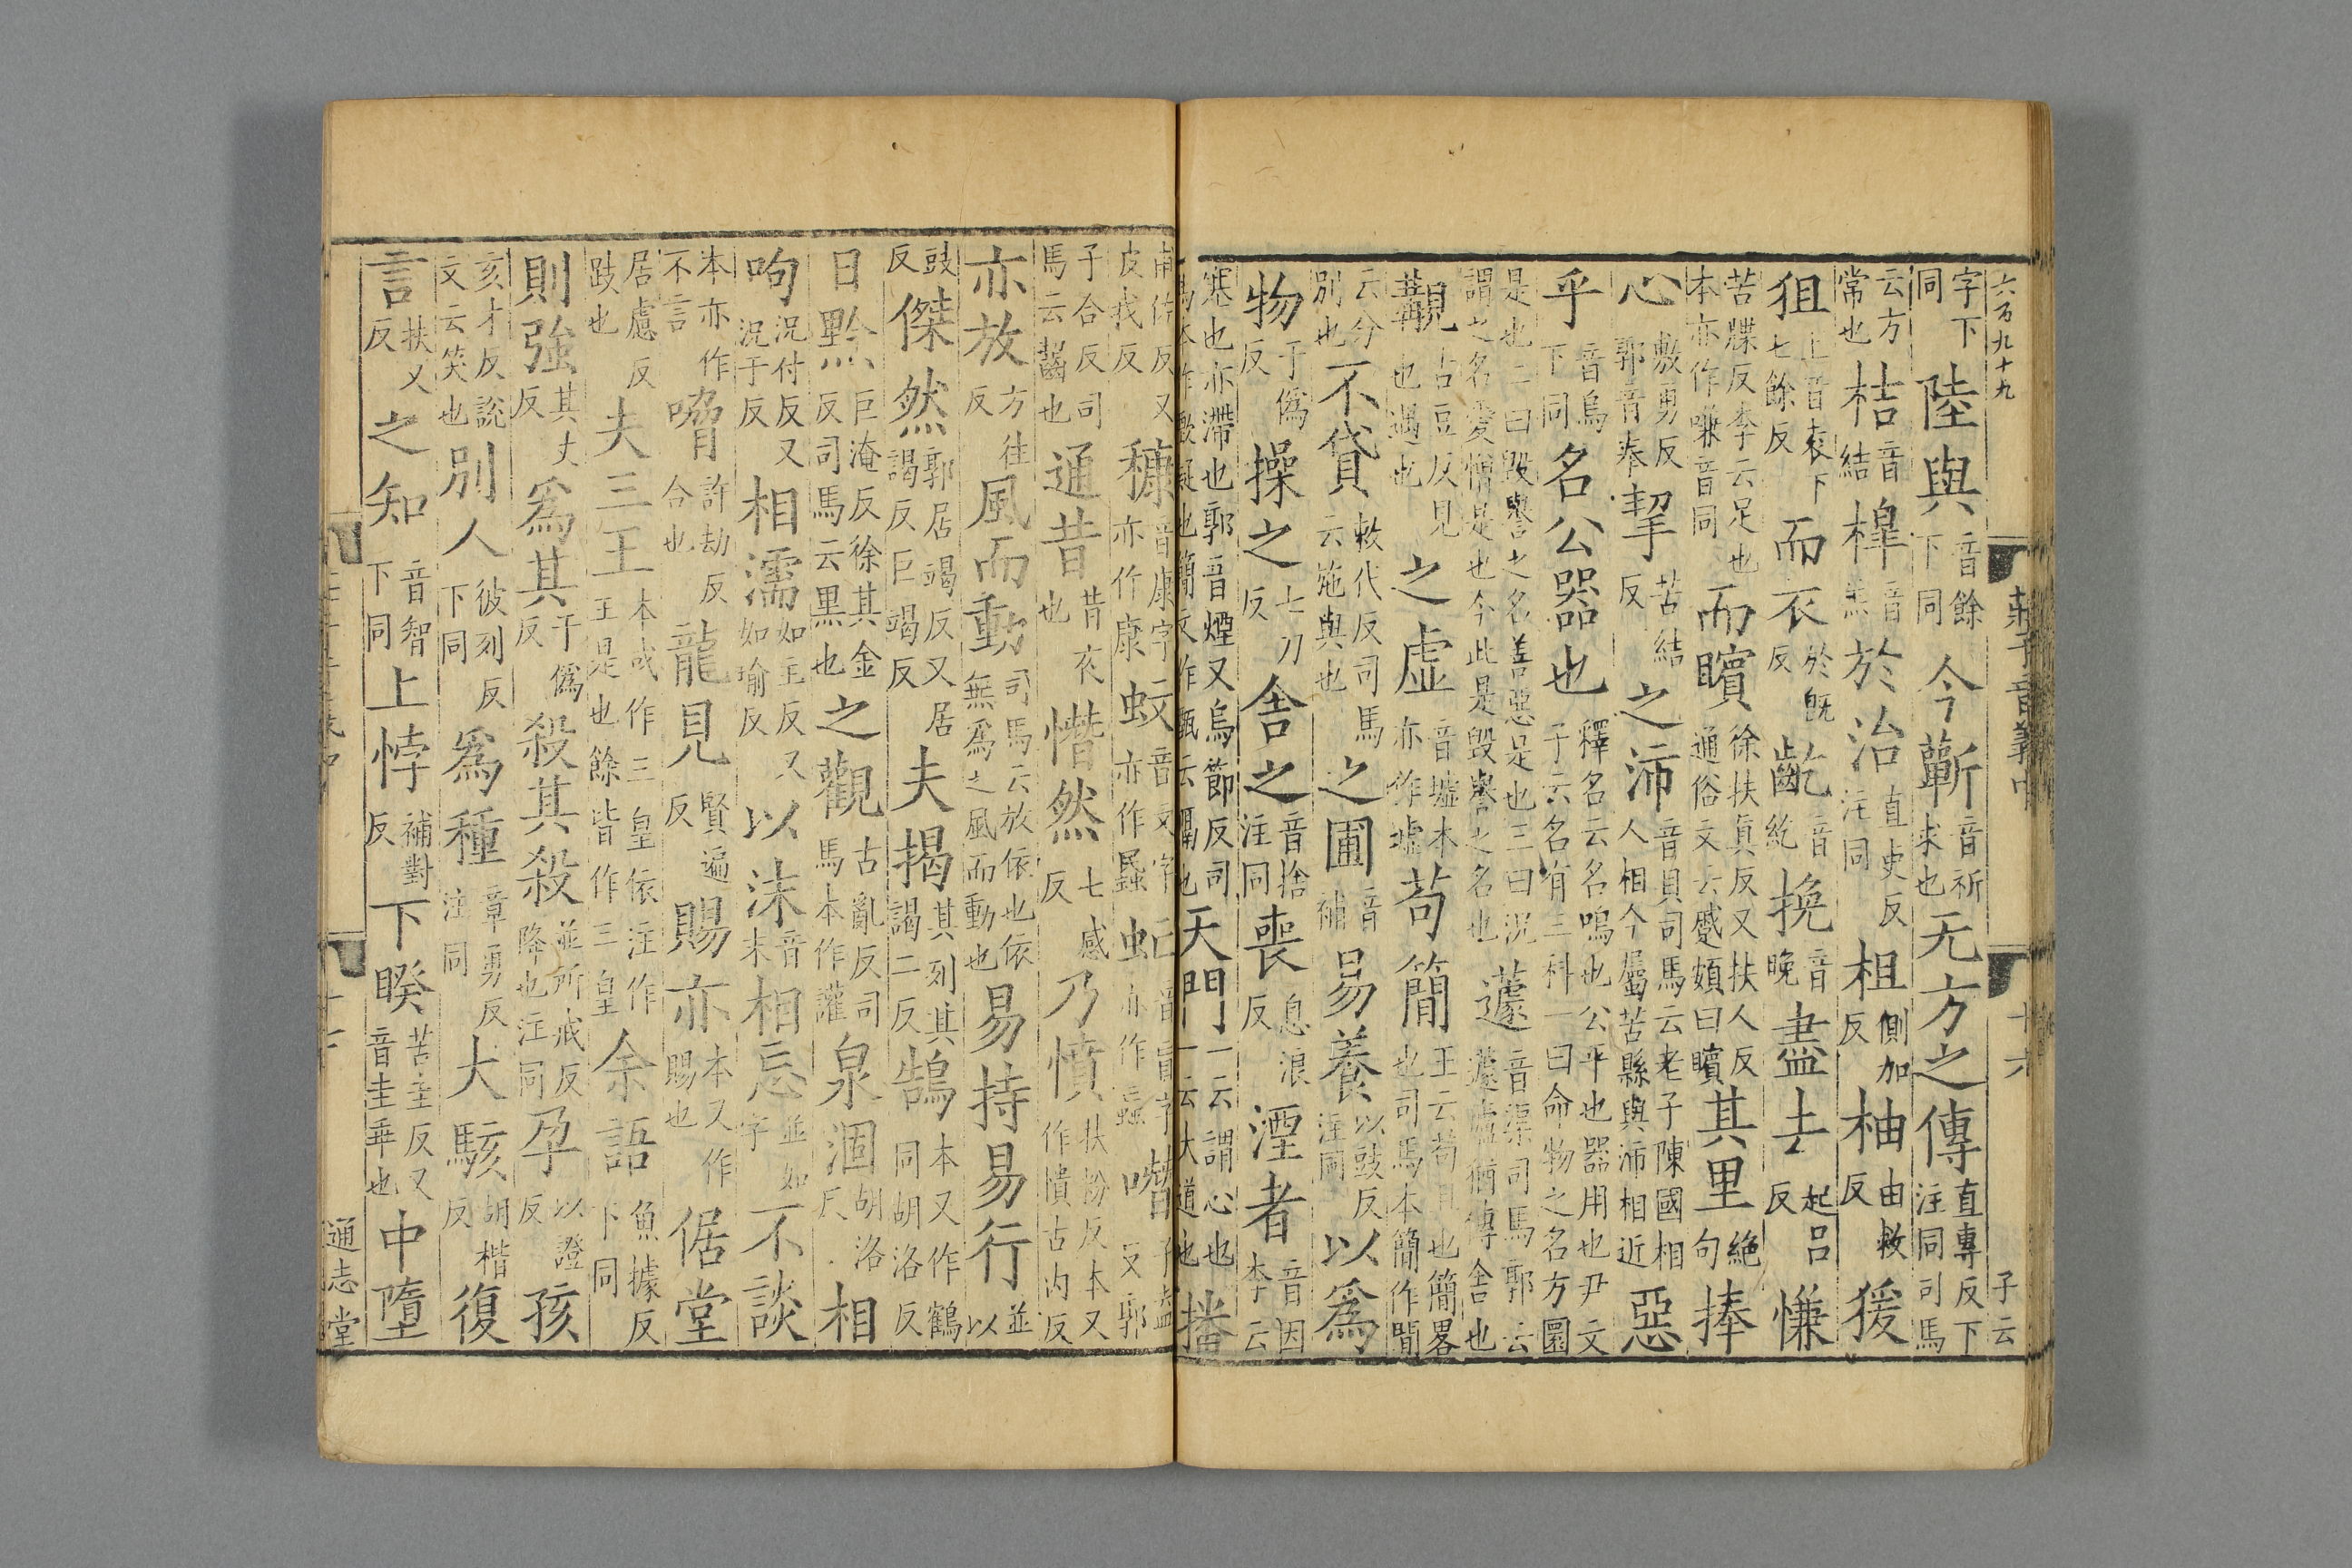 六百九十九 莊子音義中 十六 子云
字下同 陸與音餘下同 今蘄音祈求也 无方之傳直專反下注同司馬
云方常也 桔音結 槔音羔 於治直吏反注同 柤側加反 柚由救反 猨
狙上音袁下七餘反 而衣於既反 齕音紇 挽音晚 盡去起呂反 慊
苦牒反李云足也本亦作嗛音同 而矉徐扶真反又扶人反通俗文云蹙頞曰矉 其里絶句 捧
心敷勇反郭音奉 挈苦結反 之沛音貝司馬云老子陳國相人相今屬苦縣與沛相近 惡
乎音烏下同 名公器也釋名云名鳴也公平也器用也尹文子云名有三科一曰命物之名方圓
是也二曰毀譽之名善惡是也三曰況謂之名愛憎是也今此是毀譽之名也 蘧音渠司馬郭云蘧廬猶傳舍也
覯古豆反見也遇也 之虛音墟本亦作墟 苟簡王云苟且也簡畧也司馬本簡作閒
云分別也 不貸敕代反司馬云施與也 之圃音補 易養以豉反注同 以爲
物于僞反 操之七刀反 舍之音捨注同 喪息浪反 湮者音因李云
塞也亦滯也郭音煙又烏節反司馬本作歅疑也簡文作甄云隔也 天門一云謂心也一云大道也 播
甫佐反又彼我反 穅音康字亦作康 蚊音文字亦作䘇 虻音盲字亦作蝱 噆子盍反郭
子合反司馬云齧也 通昔昔夜也 憯然七感反 乃憤扶粉反本又作憒古内反
亦放方往反 風而動司馬云放依也依無爲之風而動也 易持易行並以
豉反 傑然郭居竭反又居謁反巨竭反 夫揭其列其謁二反 鵠本又作鶴同胡洛反
日黔巨淹反徐其金反司馬云黒也 之觀古亂反司馬本作讙 泉涸胡洛反 相
呴況付反又況于反 相濡如主反又如瑜反 以沫音末 相忘並如字 不談
本亦作不言 嗋許劫反合也 龍見賢遍反 賜亦本又作賜也 倨堂
居慮反跂也 夫三王本或作三皇依注作王是也餘皆作三皇 余語魚據反下同
則強其丈反 爲其于僞反 殺其殺並所戒反降也注同 孕以證反 孩
亥才反説文云笑也 別人彼列反下同 爲種章勇反注同 大駭胡楷反 復
言扶又反 之知音智下同 上悖補對反 下睽苦圭反又音圭乖也 中墮
通志堂